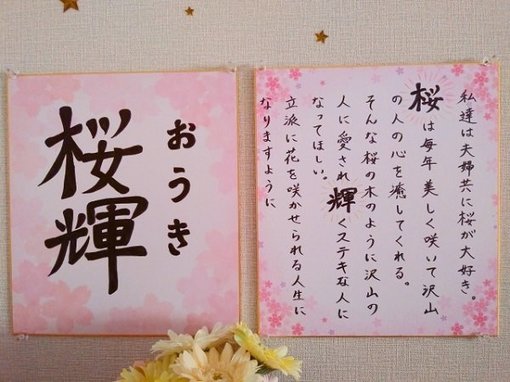 桜輝
おうき
私達は夫婦共に桜が大好き。
桜は毎年美しく咲いて沢山
の人の心を癒してくれる。
そんな桜の木のように沢山の
人に愛され輝くステキな人に
なってほしい。
立派に花を咲かせられる人生に
なりますように